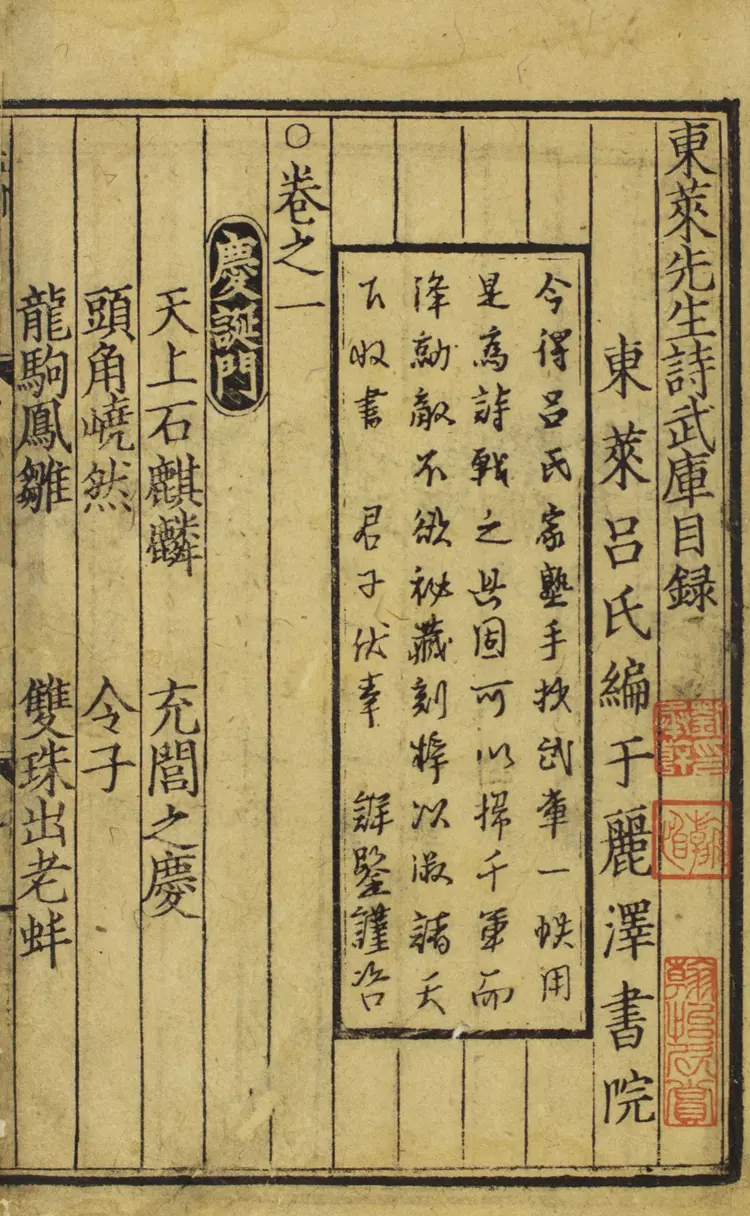 東萊先生詩武庫目録
東萊呂氏編于麗澤書院
今得呂氏家塾手抄武庫一帙用
是爲詩戰之具固可以掃千軍而
降勍敵不欲祕藏刻梓以淑諸天
下收書 君子伏幸 詳鑒謹咨
○卷之一
慶誕門
天上石麒麟 充閭之慶
頭角嶢然 令子
龍駒鳳雛 雙珠出老蚌